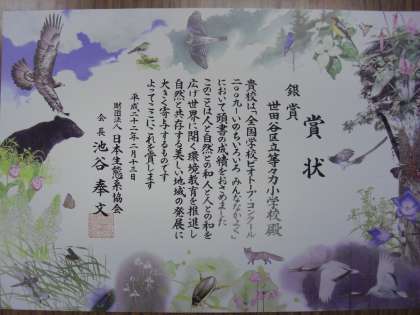 賞状
銀賞
世田谷区立等々力小学校殿
貴校は「全国学校ビオトープ・コンクール
二〇〇九－いのちいろいろ みんななかよく」
において頭書の成績をおさめました
このことは人と自然との和 人と人との和を
広げ世界に開く環境教育を推進し
自然と共存する美しい地域の発展に
大きく寄与するものです
よってここにこれを賞します
平成二十二年二月十三日
財団法人 日本生態系協会
会長 池谷奉文